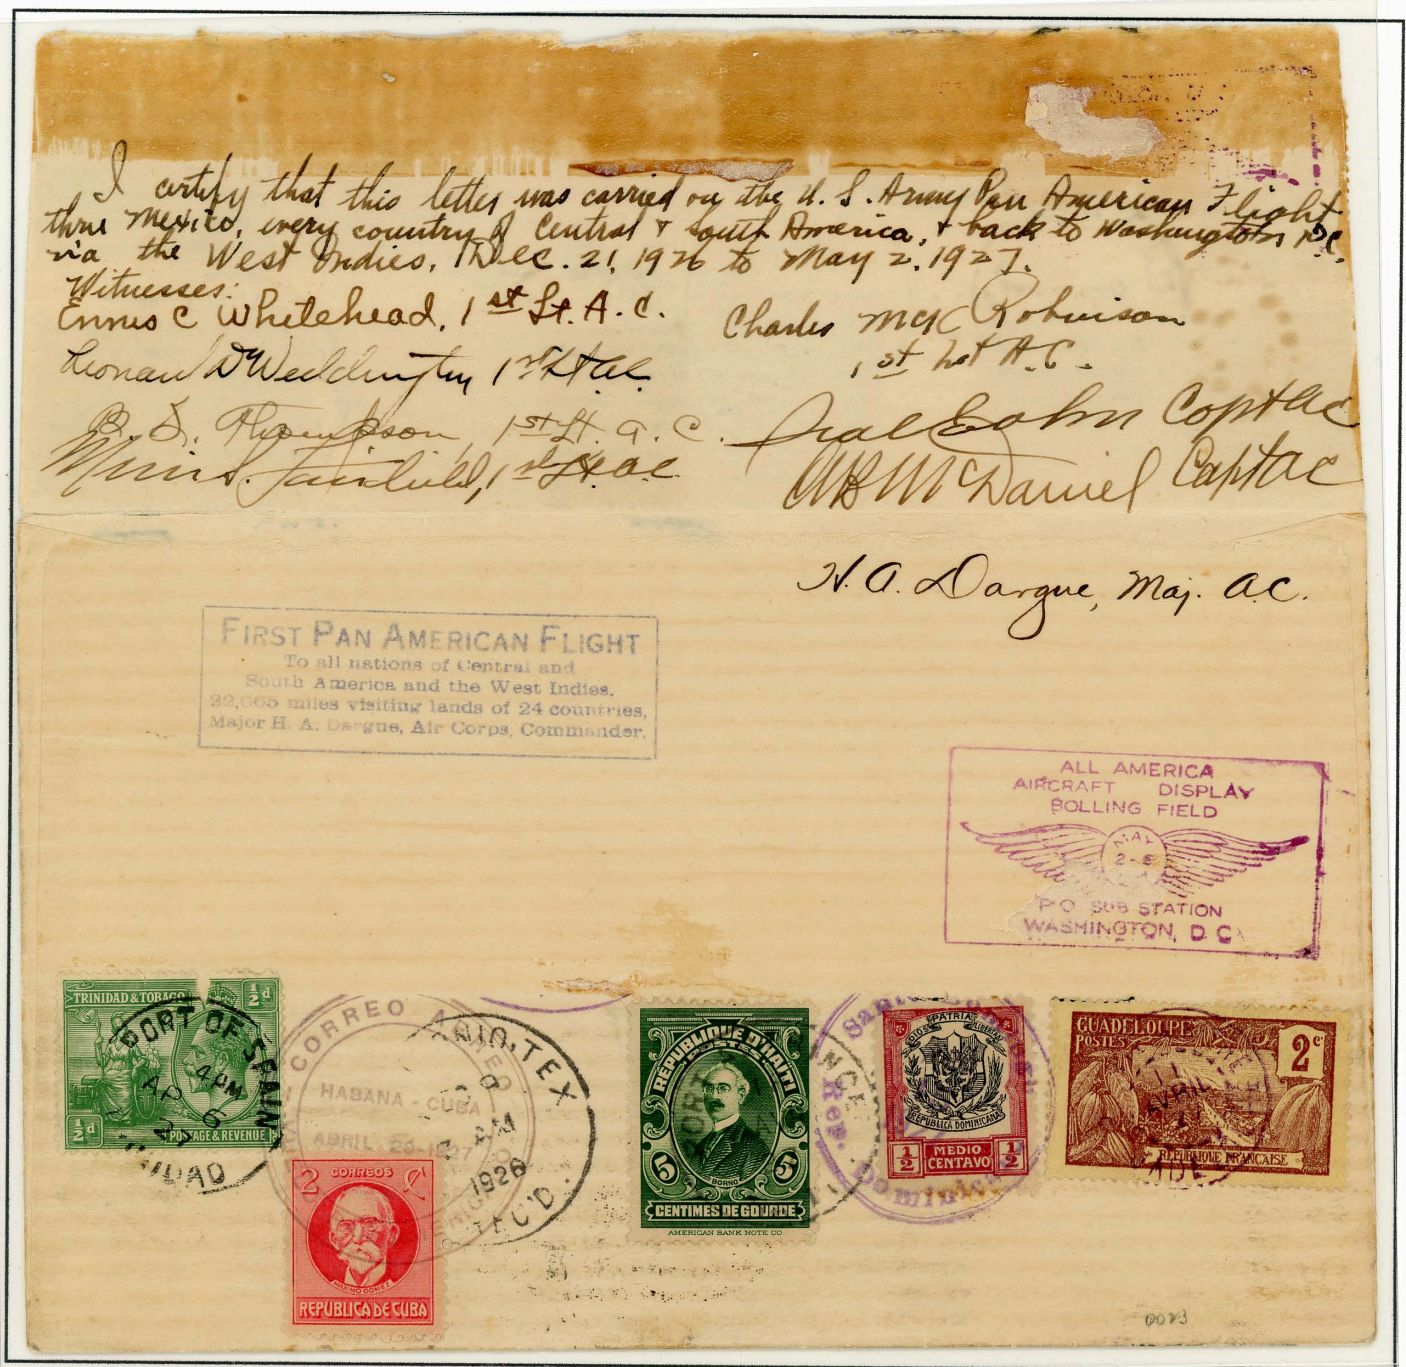 I certify that this letter was carried on the U. S. Army Pan American Flight
thru Mexico, every country of Central & South America, & back to Washington D.C.
via the West Indies, Dec. 21, 1926 to May 2, 1927.
Witnesses:
Ennis C Whitehead, 1st Lt. A. C.
Charles McK Robinson
1st Lt A.C.
Leonard D Weddington 1st Lt AC
B. S. Thompson, 1st Lt. A. C.
Muir S. Fairchild, 1st Lt. A.C.
Capt AC
AB McDaniel Capt AC
H. A. Dargue, Maj. A.C.
FIRST PAN AMERICAN FLIGHT
To all nations of Central and
South America and the West Indies.
miles visiting lands of 24 countries,
Major H. A. Dargue, Air Corps, Commander.
ALL AMERICA
AIRCRAFT DISPLAY
BOLLING FIELD
MAY
2-
P.O. SUB STATION
WASHINGTON, D C
TRINIDAD & TOBAGO
½d
½d
POSTAGE & REVENUE
PORT OF SPAIN
4 PM
AP 6
27
TRINIDAD
CORREO AEREO
HABANA - CUBA
ABRIL 1927
TEX
AM
1926
REC'D.
2 CORREOS ¢
MAXIMO GOMEZ
REPUBLICA DE CUBA
REPUBLIQUE D'HAITI
5 5
BORNO
CENTIMES DE GOURDE
AMERICAN BANK NOTE CO
PORT
Rep. Dominicana
DIOS PATRIA LIBERTAD
REPUBLICA DOMINICANA
½ MEDIO CENTAVO ½
GUADELOUPE
POSTES
2c
AVRIL
REPUBLIQUE FRANCAISE
0023